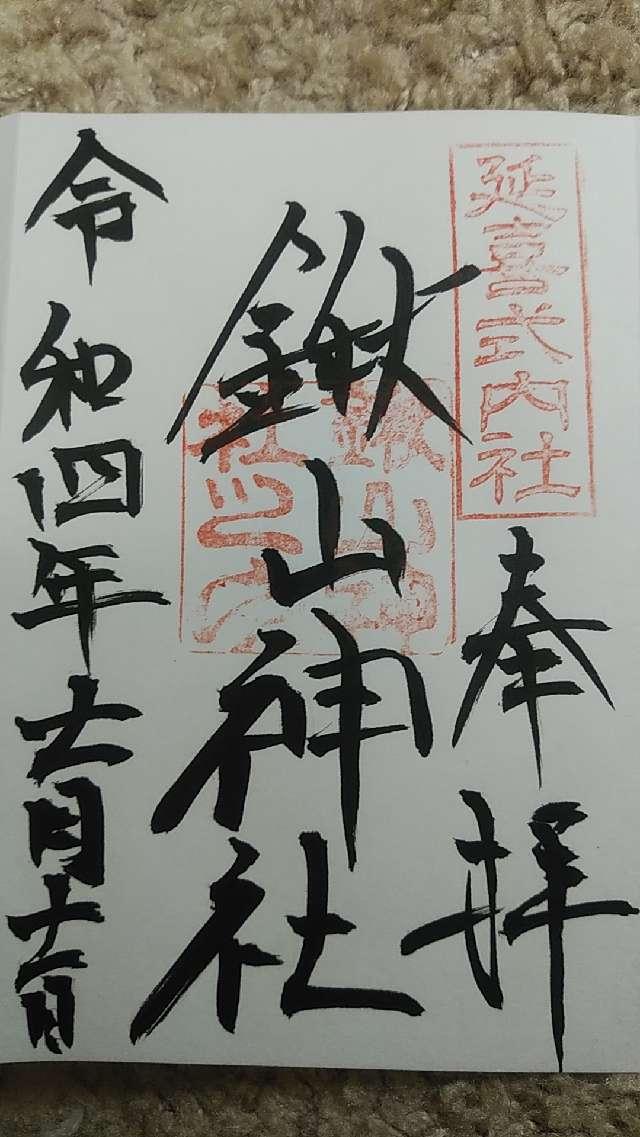 延喜式内社
奉拝
鍬山神社
鍬山神
社之印
令和四年十一月十二日